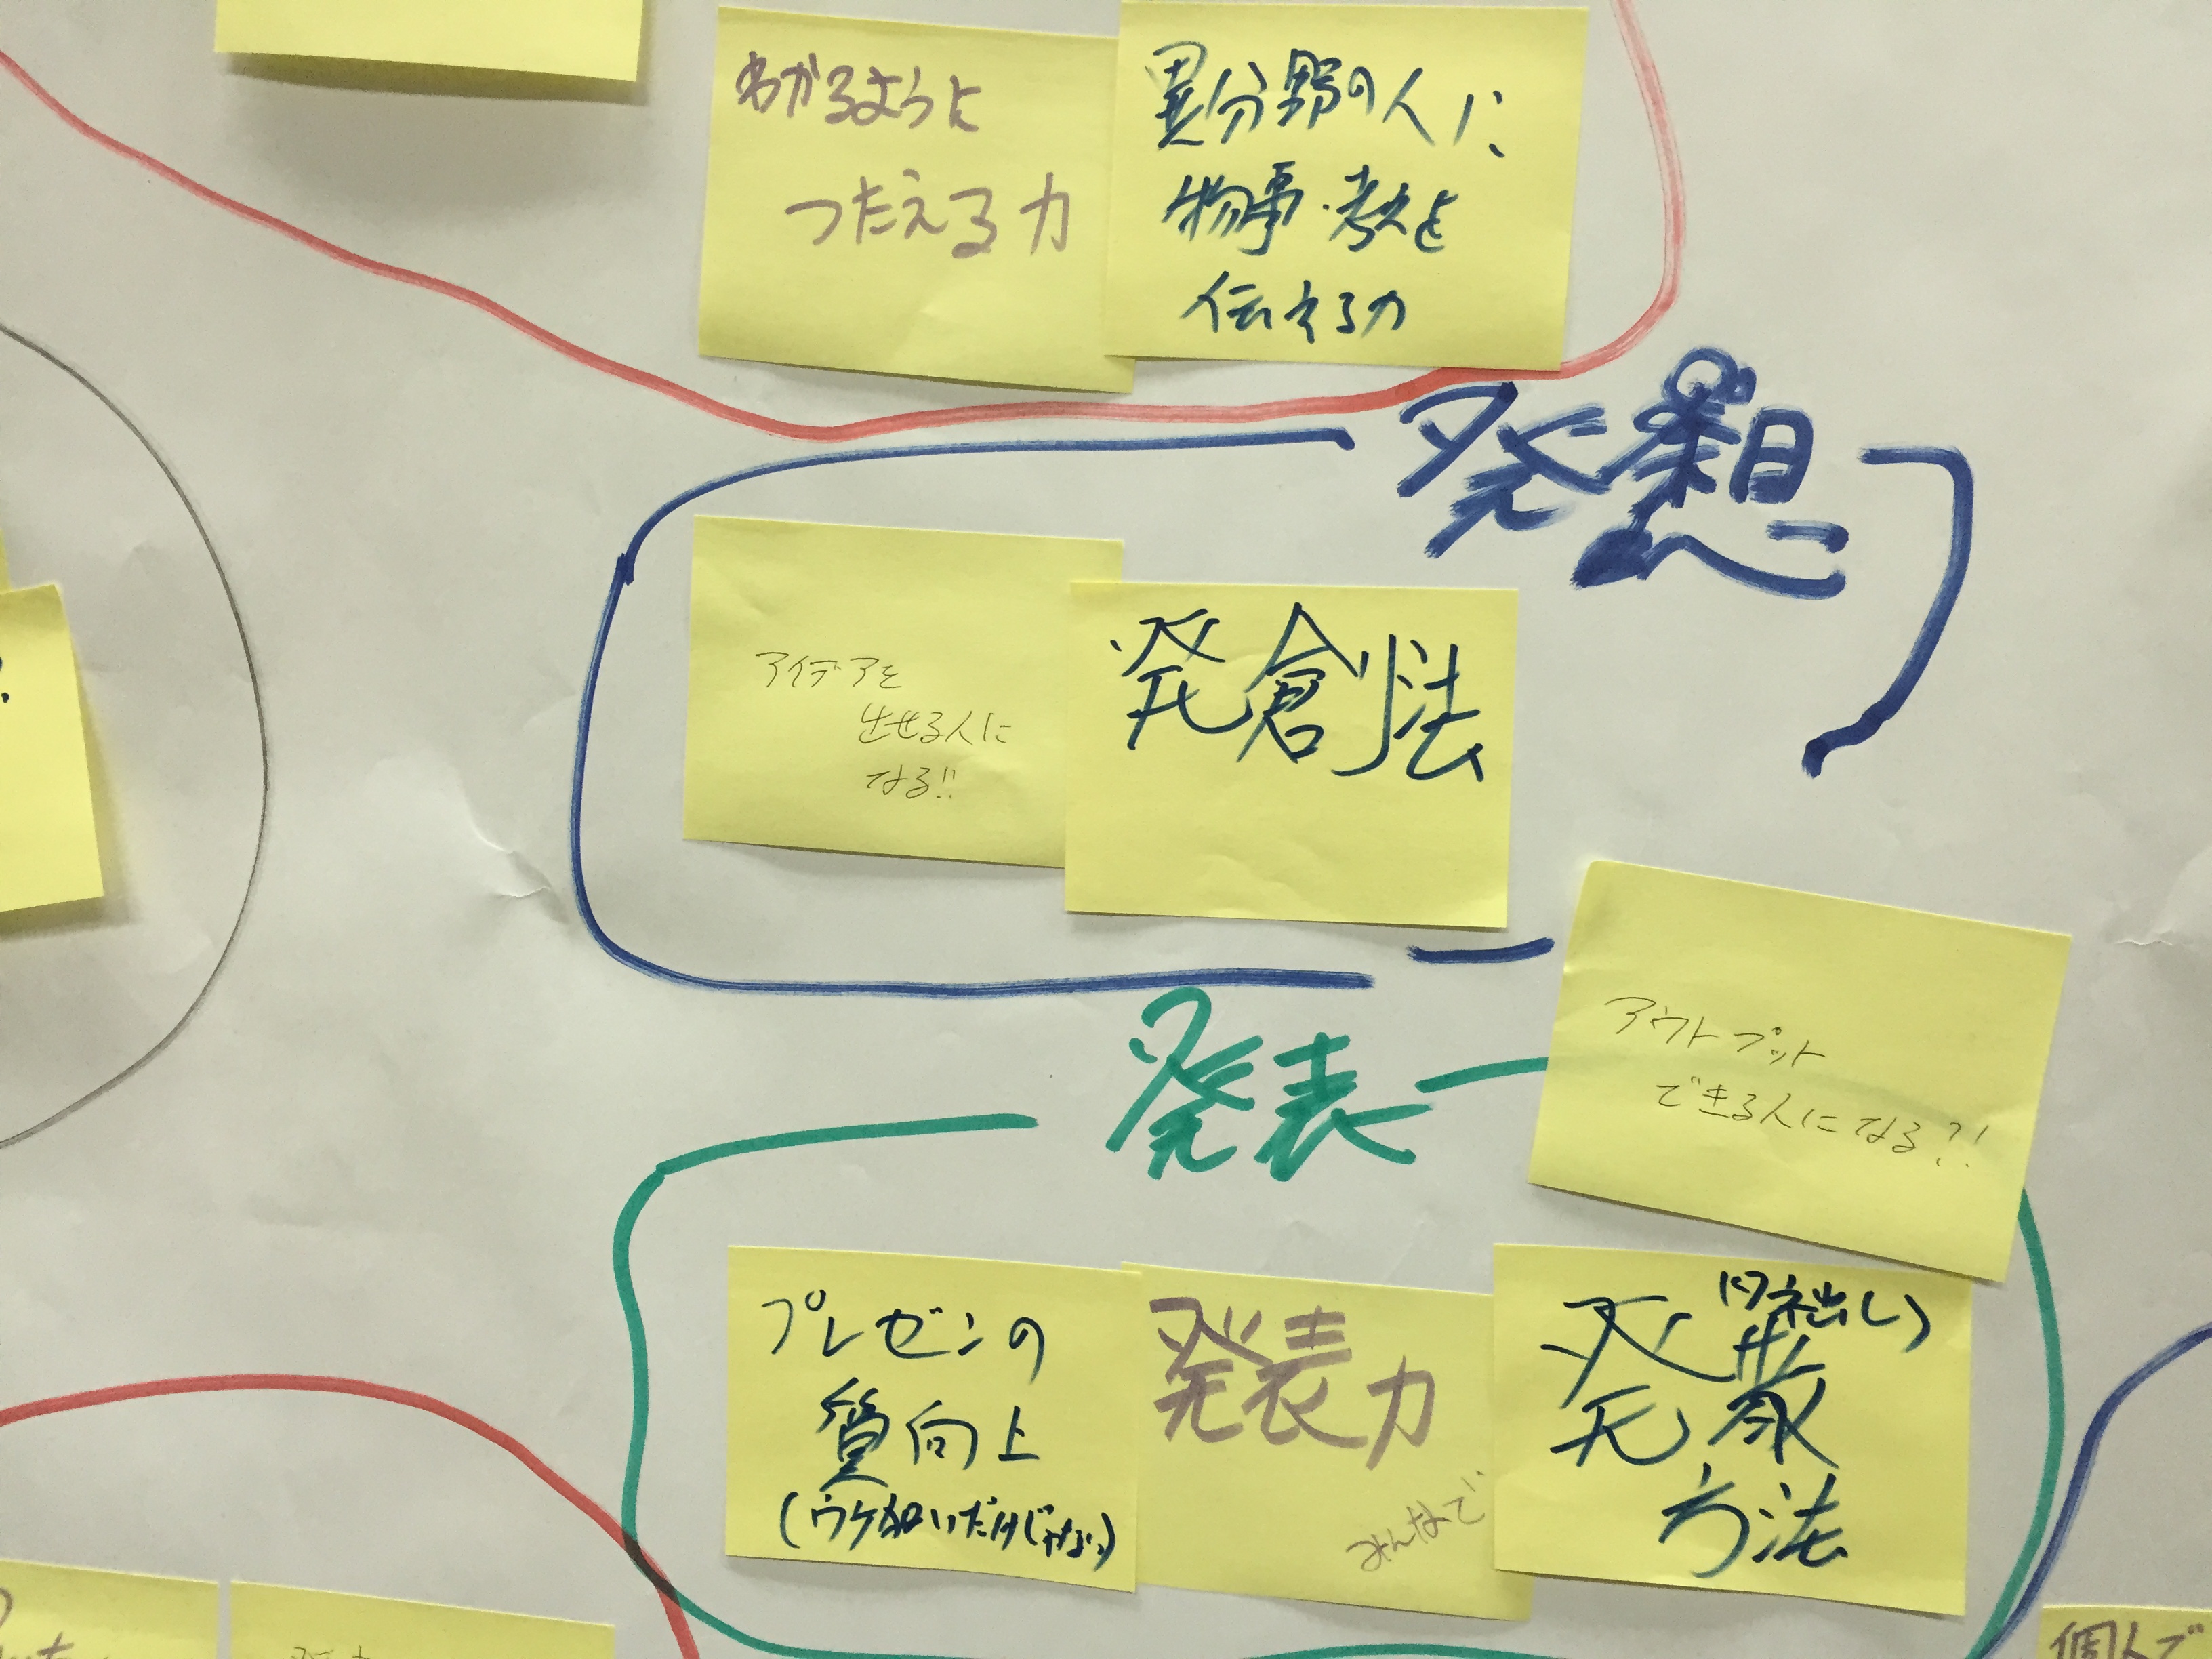 わかるように
つたえる力
異分野の人に
物事・考えを
伝える力
発想
アイデアを
出せる人に
なる!!
発創法
発表
アウトプット
できる人になる?!
プレゼンの
質向上
(ウケ狙いだけじゃない)
発表力
みんなで
(ネタ出し)
発散
方法
個人で